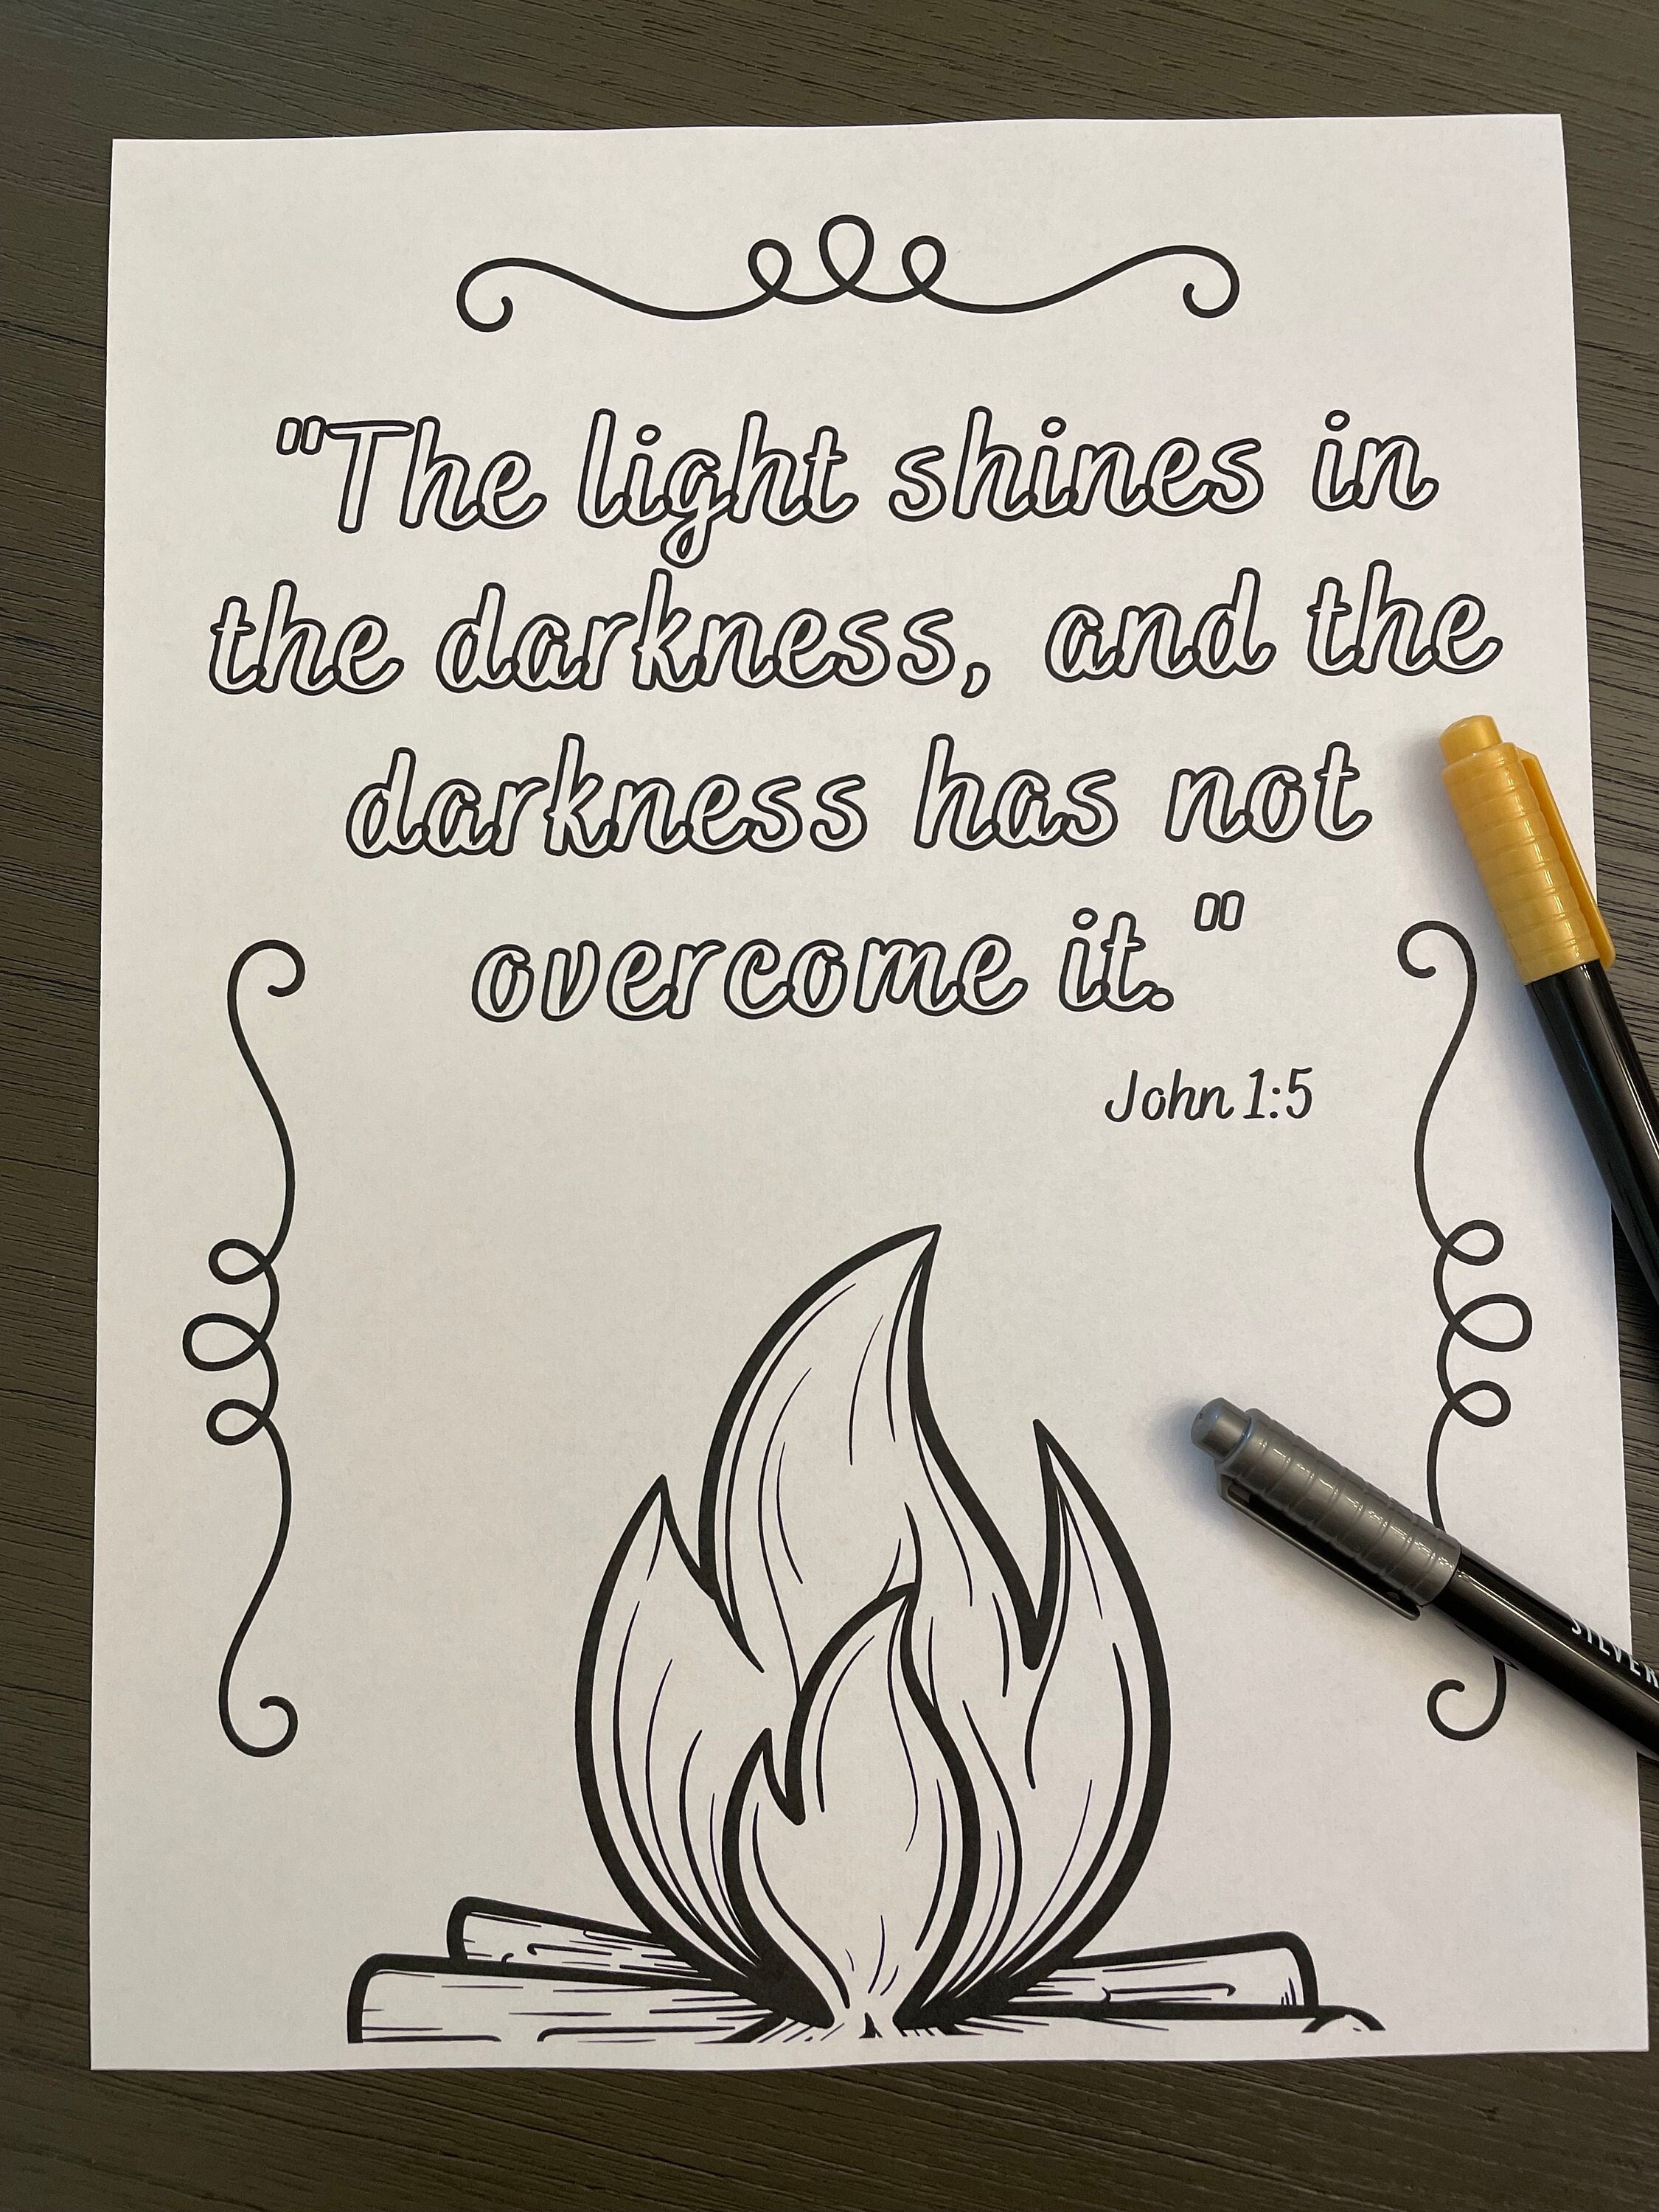 "The light shines in
the darkness, and the
darkness has not
overcome it."
John 1:5
SILVER